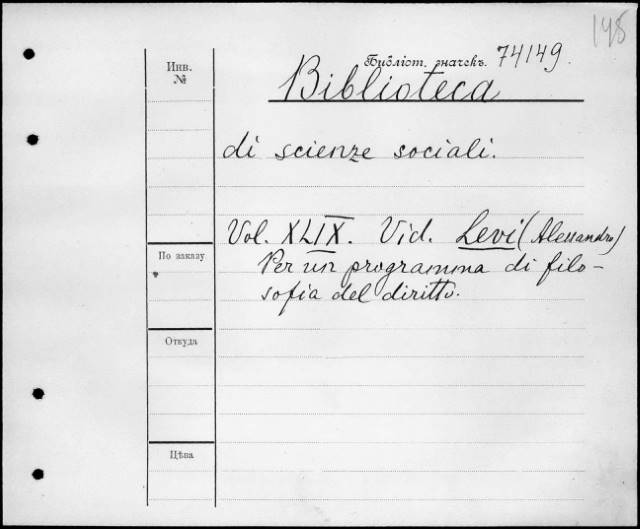 198
Библіот. значекъ. 74149.
Инв.
№
Biblioteca
di scienze sociali.
Vol. XLIX. Vid. Levi (Alessandro)
Per un programma di filo-
sofia del diritto.
По заказу
Откуда
Цѣна